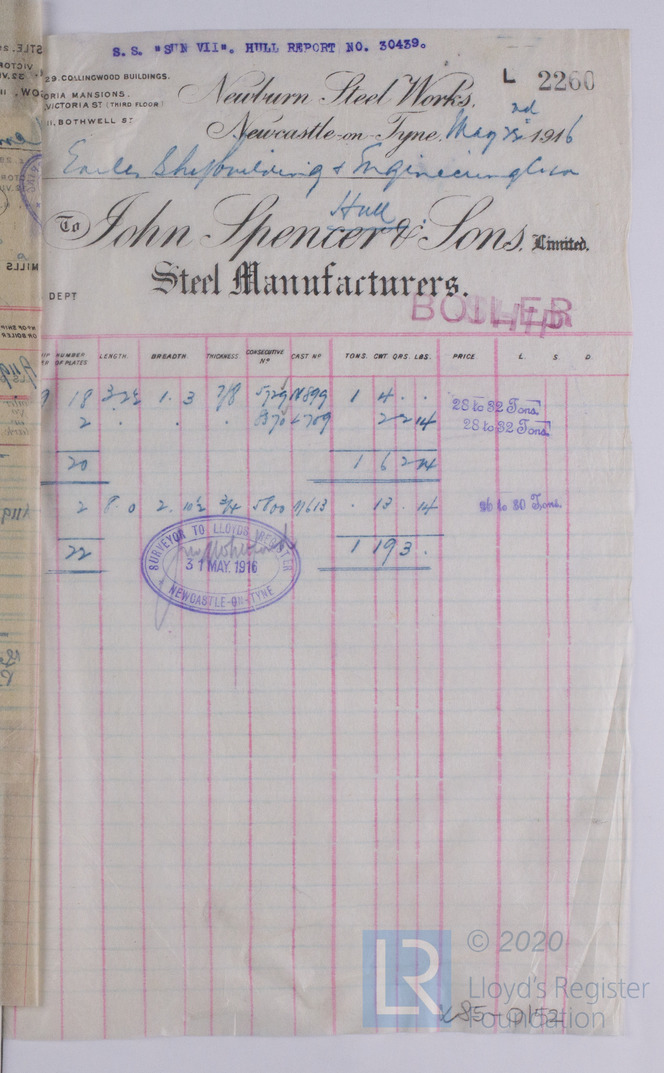 S. S. "SUN VII". HULL REPORT NO. 30439.
L 2260
29. COLLINGWOOD BUILDINGS.
ORIA MANSIONS.
VICTORIA ST (THIRD FLOOR)
11, BOTHWELL ST
Newburn Steel Works,
Newcastle-on-Tyne. May 22nd 1916
Earles Shipbuilding & Engineering
Hull
To John Spencer & Sons, Limited.
Steel Manufacturers.
DEPT
BOILER
NUMBER OF PLATES LENGTH. BREADTH. THICKNESS CONSECUTIVE Nº CAST Nº TONS. CWT. QRS. LBS. PRICE L. S. D.
18 1. 3 7/8 1 4 . . 28 to 32 Tons.
2 . . . 2 2 14 28 to 32 Tons.
20 1 6 2 14
2 8. 0 2. 10½ 3/4 5800 . 13 . 14 26 to 30 Tons.
22 1 19 3 .
SURVEYOR TO LLOYDS REGISTER
31 MAY. 1916
NEWCASTLE-ON-TYNE
LR
© 2020
Lloyd's Register
Foundation